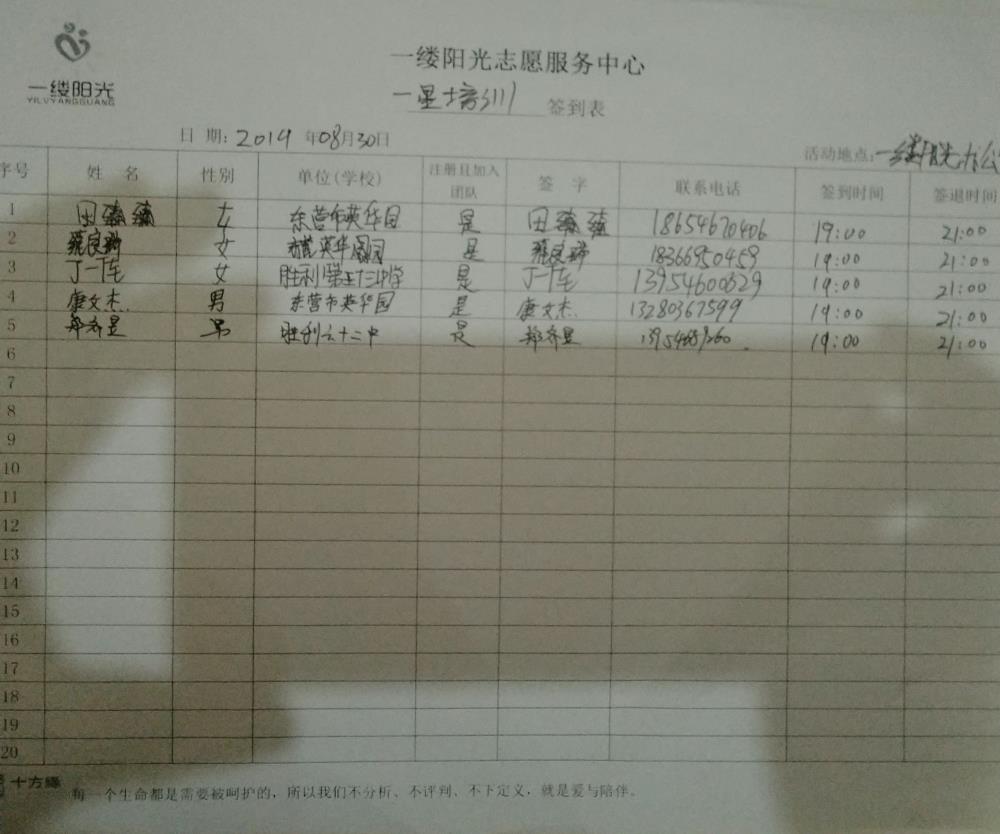 一缕阳光
YILVYANGGUANG
一缕阳光志愿服务中心
一星培训 签到表
日 期: 2019 年08月30日
活动地点:一缕阳光办公
序号 姓 名 性别 单位(学校) 注册且加入团队 签 字 联系电话 签到时间 签退时间
1 田 女 东营市英华园 是 田 18654670406 19:00 21:00
2 女 英华园 是 18366950459 19:00 21:00
3 丁一 女 胜利第五十三中学 是 丁一 13954600329 19:00 21:00
4 唐文杰 男 东营市英华园 是 唐文杰. 13280367599 19:00 21:00
5 郑齐昱 男 胜利六十二中 是 郑齐昱 19:00 21:00
6
7
8
9
10
11
12
13
14
15
16
17
18
19
20
十方缘 每一个生命都是需要被呵护的，所以我们不分析、不评判、不下定义，就是爱与陪伴。